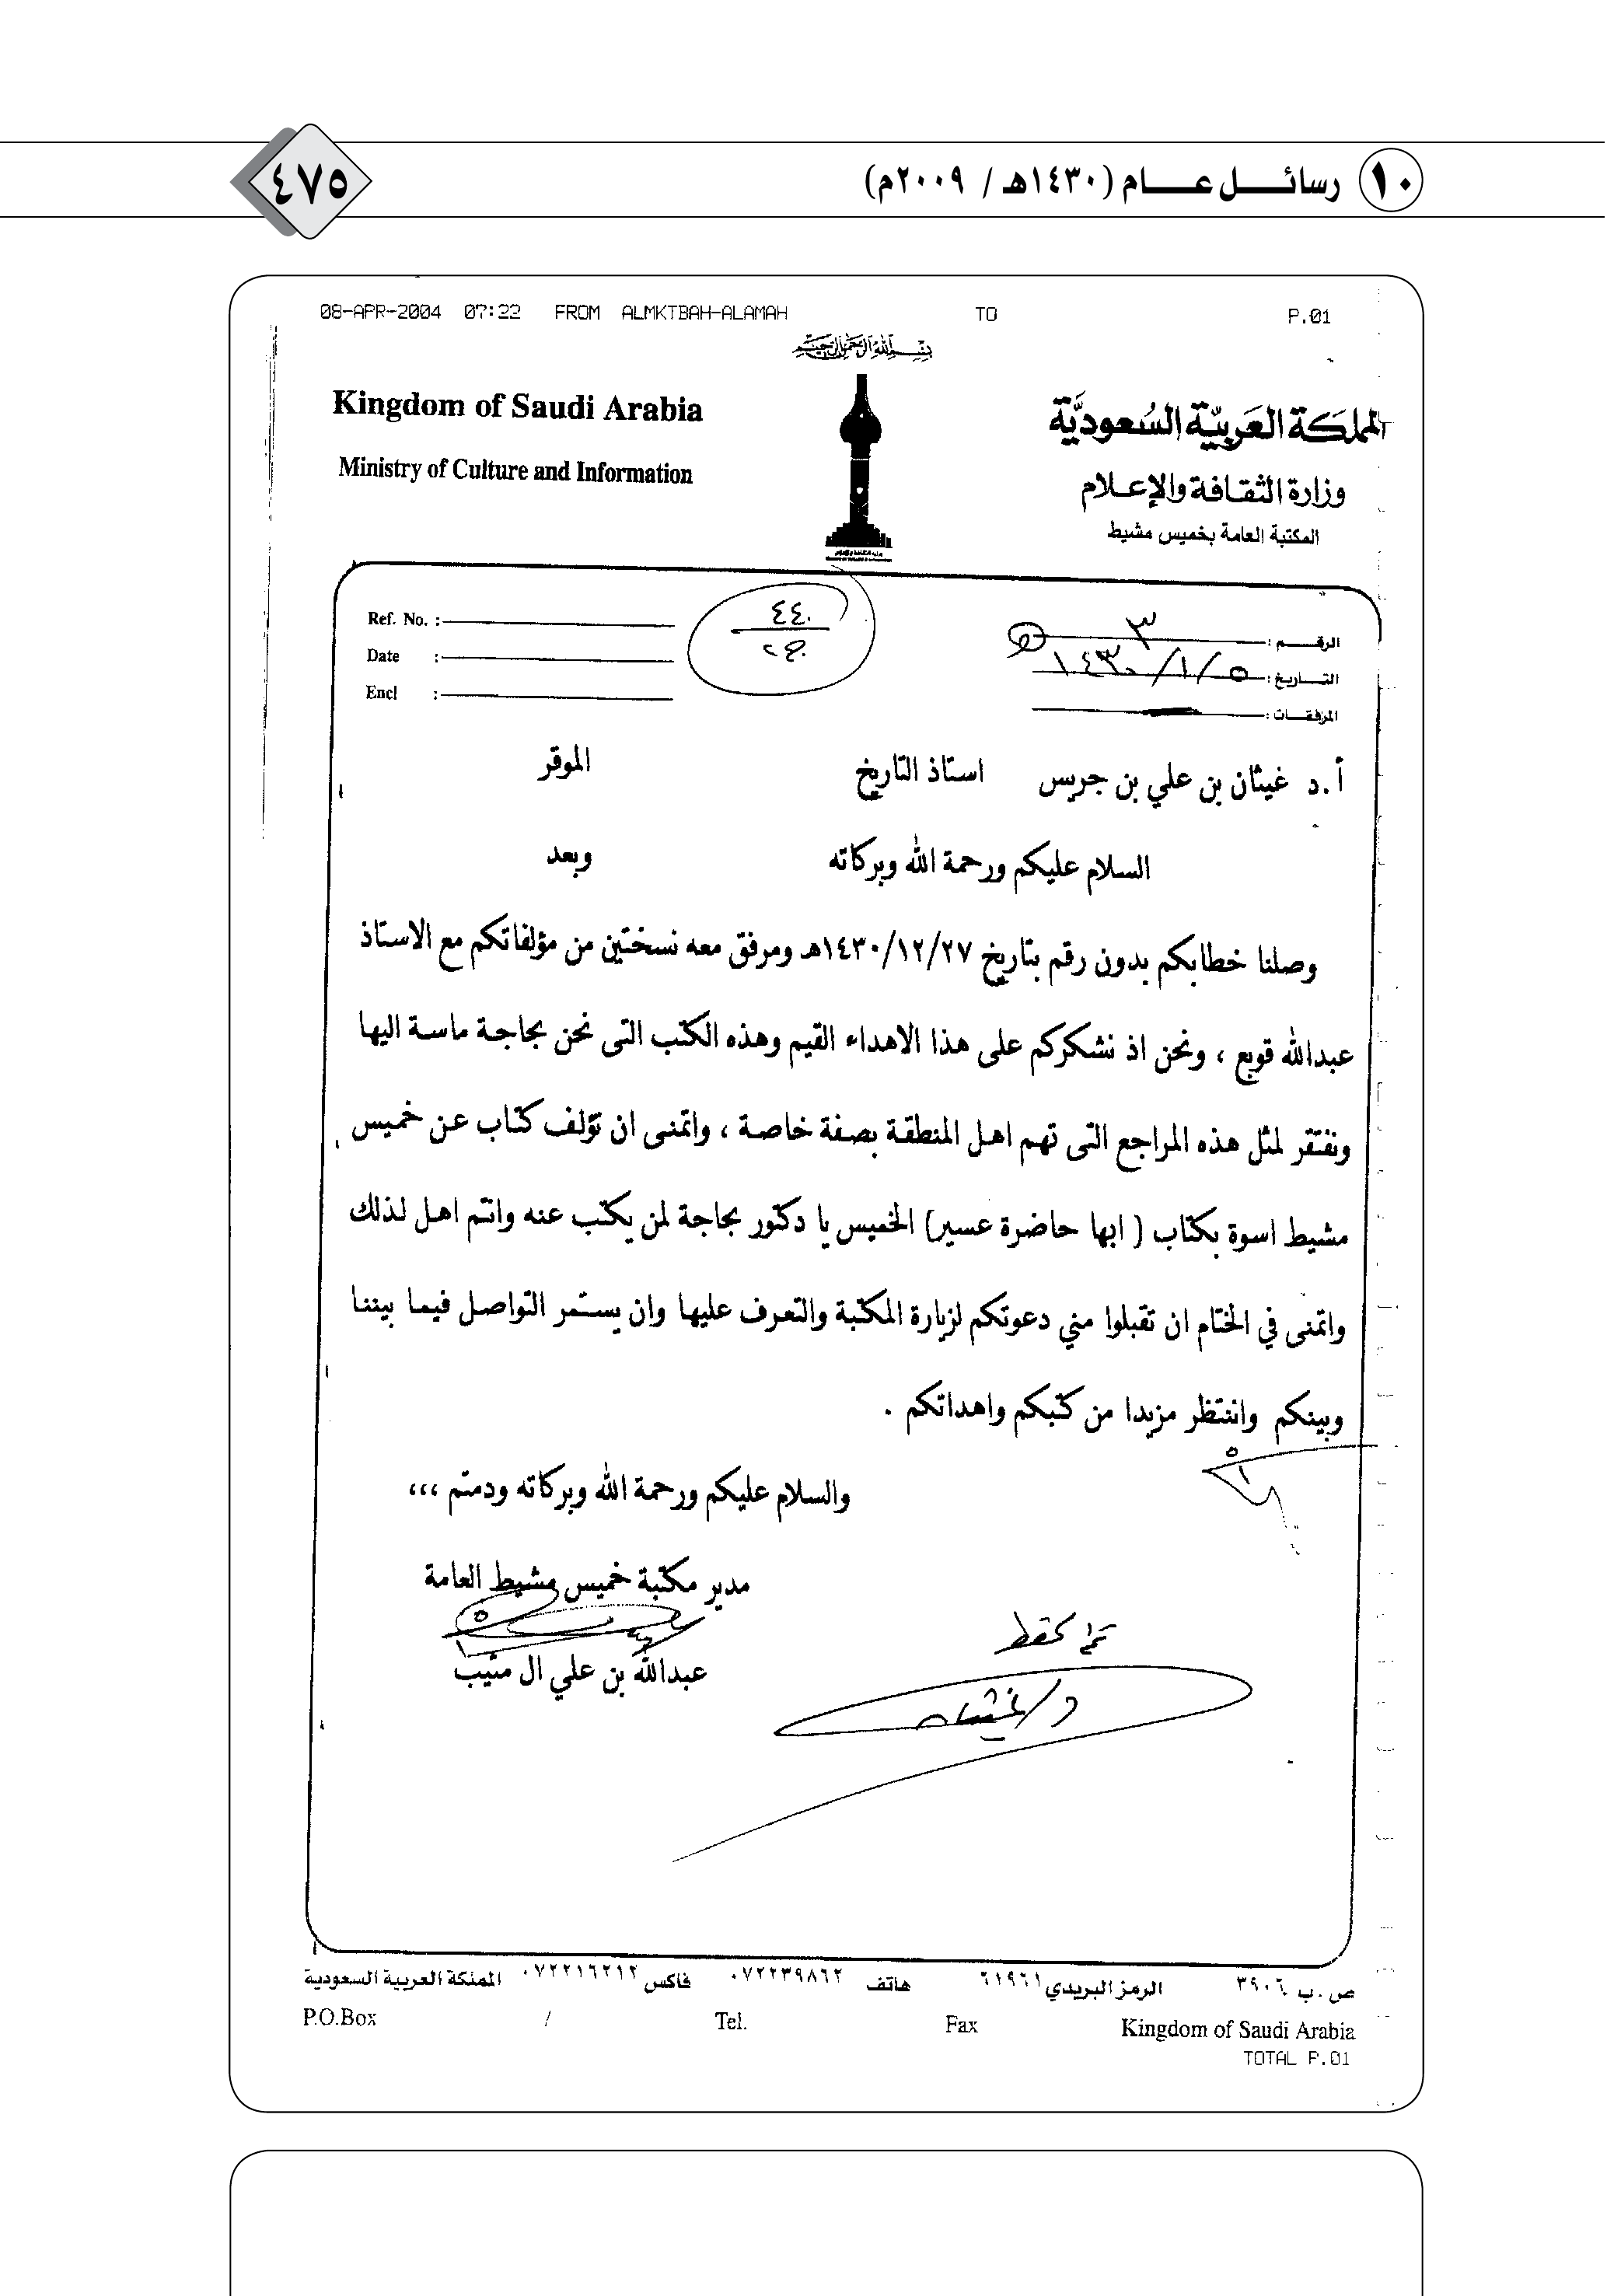 ١٠ رسائــــل عــــام (١٤٣٠هـ / ٢٠٠٩م)
٤٧٥
08-APR-2004 07:22 FROM ALMKTBAH-ALAMAH TO P.01
بسم الله الرحمن الرحيم
المملكة العربية السعودية
Kingdom of Saudi Arabia
وزارة الثقافة والإعلام
Ministry of Culture and Information
المكتبة العامة بخميس مشيط
الرقــــم : ٣
التــاريخ : ١٤٣٠/١/٥
المرفقــات :
Ref. No. :
Date :
Encl :
٤٤٠
أ.د غيثان بن علي بن جريس استاذ التاريخ الموقر
السلام عليكم ورحمة الله وبركاته وبعد
وصلنا خطابكم بدون رقم بتاريخ ١٤٣٠/١٢/٢٧هـ ومرفق معه نسختين من مؤلفاتكم مع الاستاذ
عبدالله قويع ، ونحن اذ نشكركم على هذا الاهداء القيم وهذه الكتب التى نحن بحاجة ماسة اليها
ونفتقر لمثل هذه المراجع التى تهم اهل المنطقة بصفة خاصة ، واتمنى ان تؤلف كتاب عن خميس
مشيط اسوة بكتاب ( ابها حاضرة عسير) الخميس يا دكتور بحاجة لمن يكتب عنه وانتم اهل لذلك
واتمنى في الختام ان تقبلوا مني دعوتكم لزيارة المكتبة والتعرف عليها وان يستمر التواصل فيما بيننا
وبينكم واننتظر مزيدا من كتبكم واهداتكم .
والسلام عليكم ورحمة الله وبركاته ودمتم ،،،
مدير مكتبة خميس مشيط العامة
عبدالله بن علي ال متيب
د/غيثان
ص.ب ٣٩٠٦ الرمز البريدي ٦١٩٦١ هاتف ٠٧٢٢٣٩٨٦٢ فاكس ٠٧٢٢١٦٢١٢ المملكة العربية السعودية
P.O.Box / Tel. Fax Kingdom of Saudi Arabia
TOTAL P.01